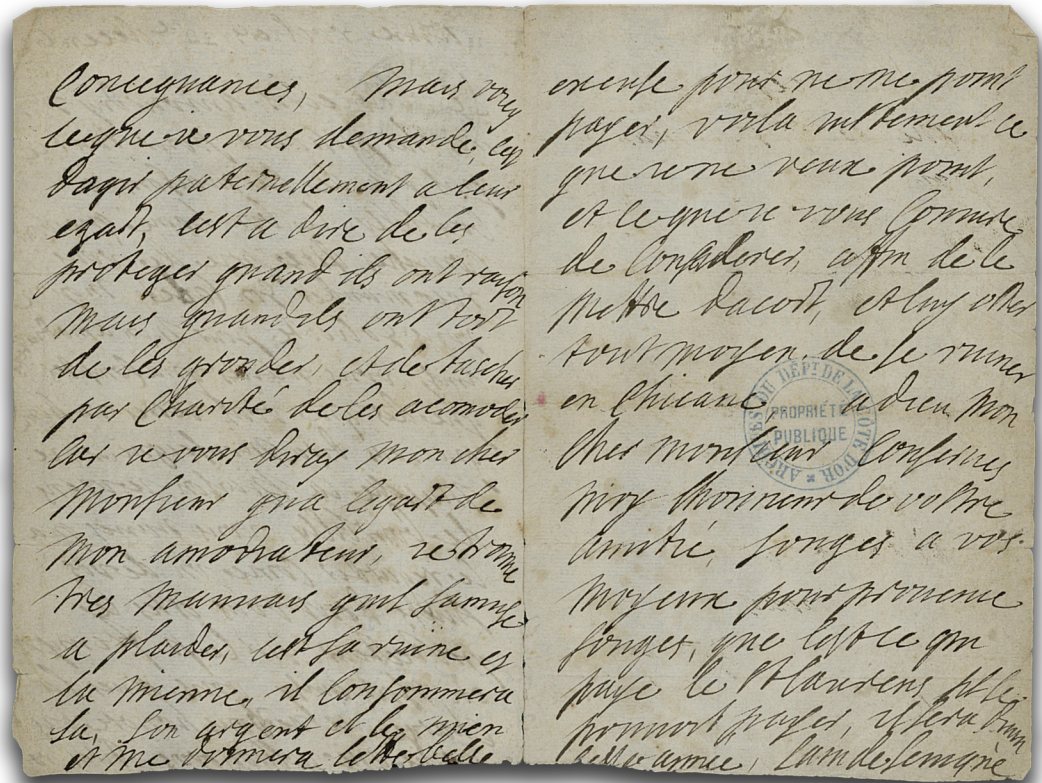 Conceqnances, Mais voicy
ceque ie vous demande, cest
dagir paternellement a leur
egart, cest a dire de les
proteger quand ils ont raison
Mais quand ils ont tort
de les gronder, et de tascher
par Charité de les acomoder
Car ie vous diray mon cher
Monsieur qua legart de
Mon amodiateur, ie trouve
tres Mauvais quil samuse
a plaider, cest sa ruine et
la mienne, il Consommera
la, Son argent et le mien
et me donnera cette belle
excuse pour ne me point
payer, voila nettement ce
que ie ne veux point,
et ce que ie vous Conjure
de Considerer, affin de le
Mettre dacort, et luy oster
tout moyen de se ruiner
en Chicane, a dieu Mon
Cher Monsieur Conserves
moy lhonneur de vostre
amitié, songes a vos
Moyeux pour provence
songes, que cest ce qui
paye le St laurens sil le
pouvoit payer, il sera dune
belle annee, Lam de Sevigné
ARCHIVES DU DÉPT DE LA CÔTE D'OR
PROPRIÉTÉ
PUBLIQUE